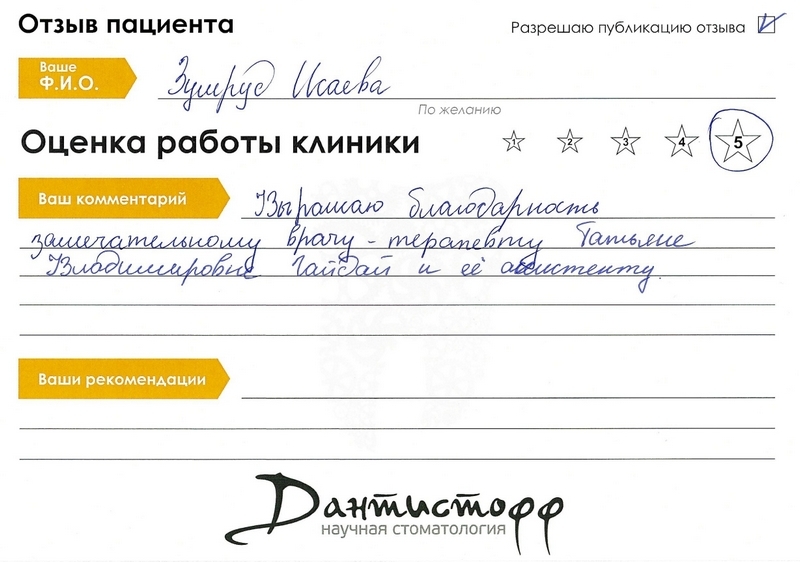 Отзыв пациента
Разрешаю публикацию отзыва
Ваше
Ф.И.О.
Зумруд Исаева
По желанию
Оценка работы клиники
1 2 3 4 5
Ваш комментарий
Выражаю благодарность
замечательному врачу - терапевту Татьяне
Владимировне Гайдай и её ассистенту.
Ваши рекомендации
Дантистофф
научная стоматология